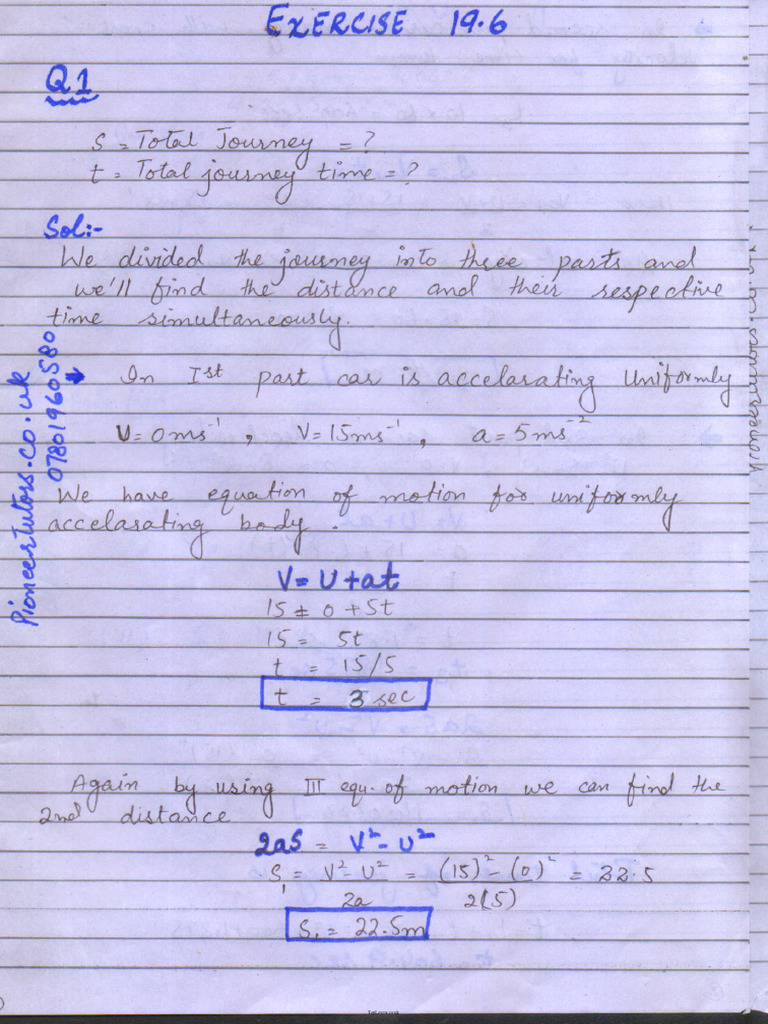 EXERCISE 19.6
Q1
S = Total Journey = ?
t = Total journey time = ?
Sol:-
We divided the journey into three parts and
we'll find the distance and their respective
time simultaneously.
→ In Ist part car is accelarating Uniformly
U = 0ms⁻¹, V = 15ms⁻¹, a = 5ms⁻²
We have equation of motion for uniformly
accelarating body.
V = U + at
15 = 0 + 5t
15 = 5t
t = 15/5
t = 3 sec
Again by using III equ. of motion we can find the
2nd distance
2aS = V² - U²
S₁ = V² - U² / 2a = (15)² - (0)² / 2(5) = 22.5
S₁ = 22.5m
Pioneertutors.co.uk
07801960580